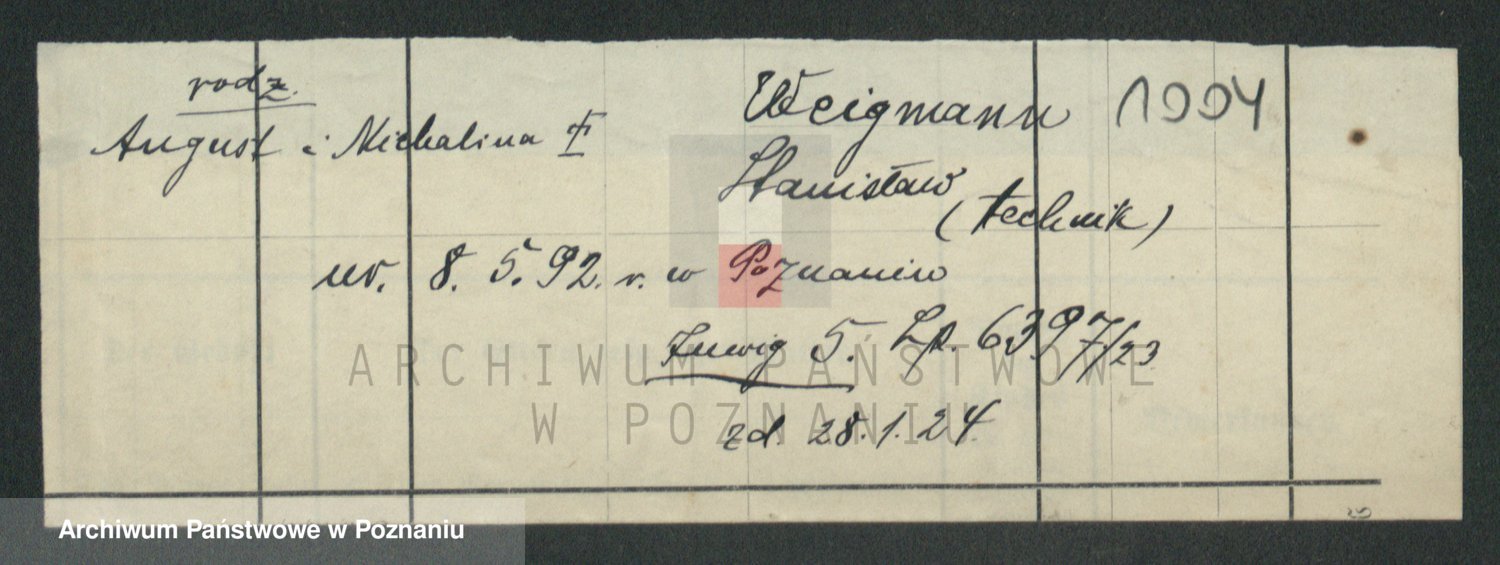 rodz.
August i Michalina
Weigmann 1994
Stanisław
(technik)
ur. 8. 5. 92. r. w Poznaniu
5. Lp. 6397/23
zd. 28. 1. 24.
ARCHIWUM PAŃSTWOWE
W POZNANIU
Archiwum Państwowe w Poznaniu